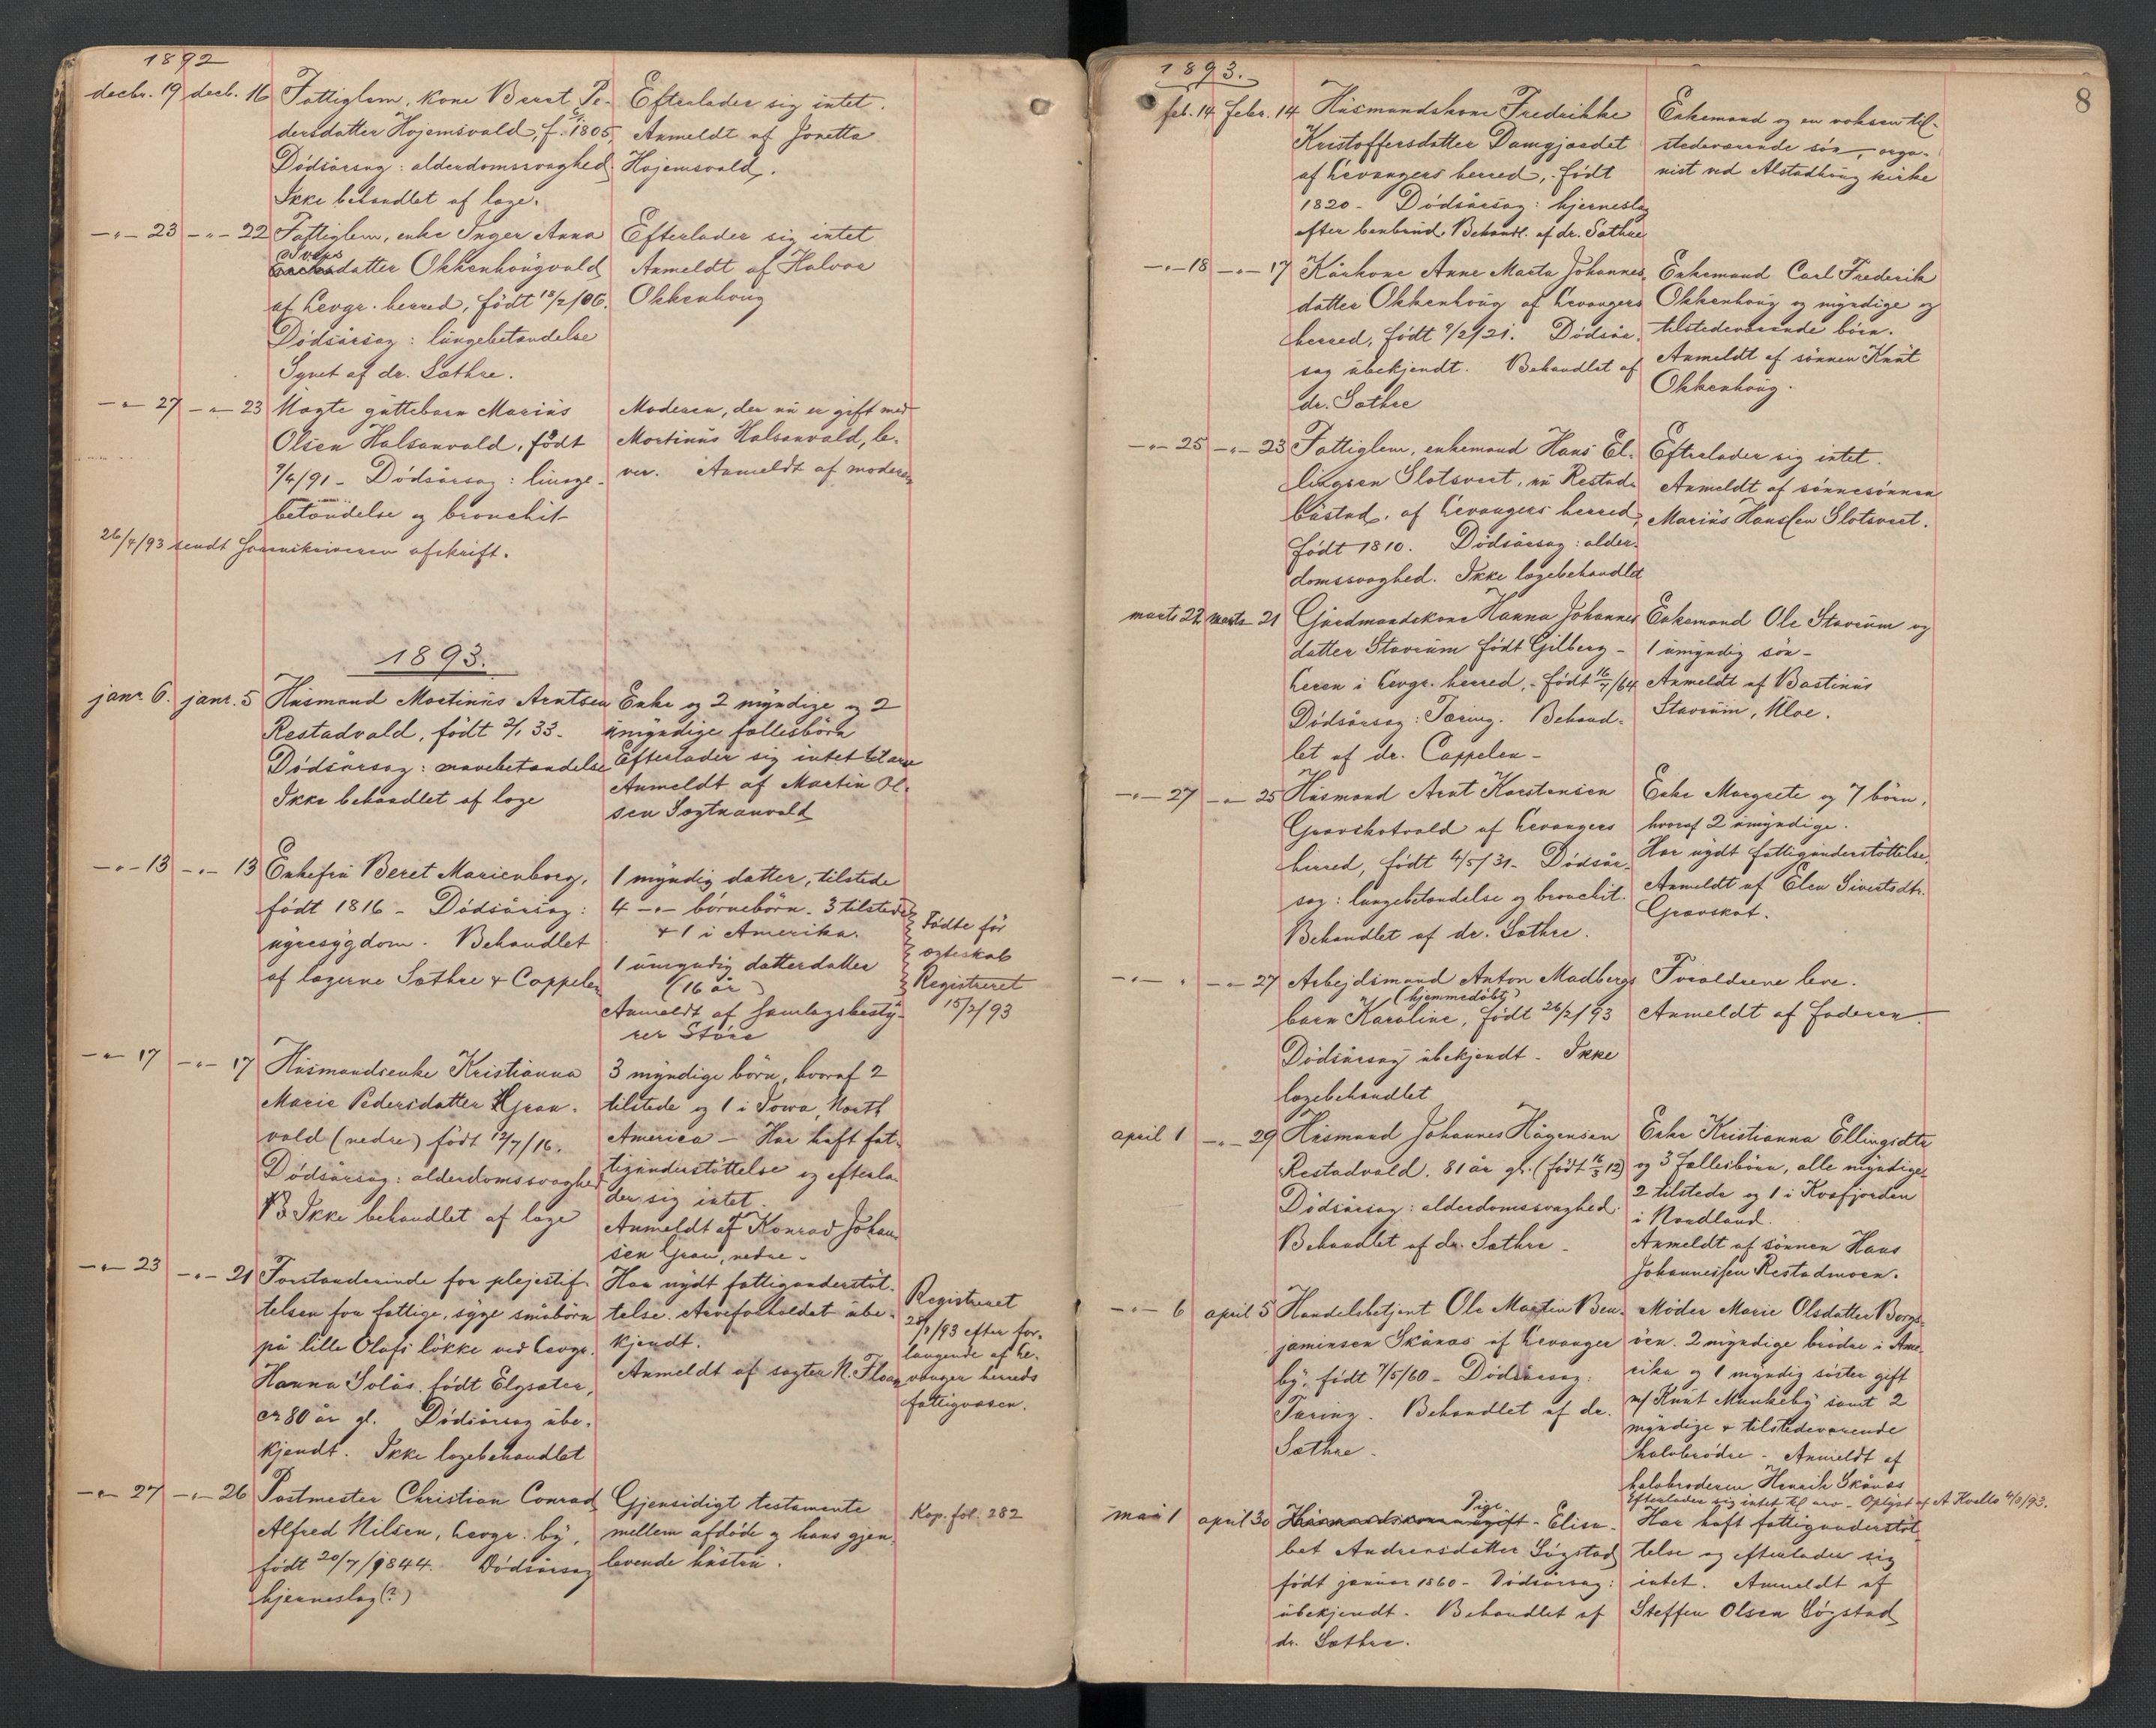 1892
decbr. 19 decb. 16 Fattiglem, kone Beret Pe-
dersdatter Hojemsvald, f. 1805,
Dödsårsag: alderdomssvaghed
Ikke behandlet af læge.
Efterlader sig intet.
Anmeldt af Jonetta
Hojemsvald.
-"- 23 -"- 22 Fattiglem, enke Inger Anna
datter Okkenhougvald
af Levgr. herred, født 18/2/06.
Dödsårsag: lungebetændelse
Synet af dr. Sæthre.
Efterlader sig intet
Anmeldt af Halvor
Okkenhoug
-"- 27 -"- 23 Uægte gutteborn Marius
Olsen Halsanvald, født
7/4/91 - Dödsårsag: lunge-
betændelse og bronchit
Moderen, der nu er gift med
Martinus Halsanvald, le-
ver. Anmeldt af moderen
26/4/93 sendt Sorenskriveren afskrift.
1893.
janr. 6. janr. 5 Husmand Martinus Arntsen
Restadvald, født 2/1 33.
Dödsårsag: mavebetændelse
Ikke behandlet af læge
Enke og 2 myndige og 2
umyndige fællesbörn
Efterlader sig intet til arv
Anmeldt af Martin Ol-
sen Sogtnanvald
-"- 13 -"- 13 Enkefru Beret Marienborg,
født 1816 - Dödsårsag:
nyresygdom. Behandlet
af lægerne Sæthre & Cappelen
1 myndig datter, tilstede
4 -"- börnebörn. 3 tilstede
+ 1 i Amerika.
1 umyndig datterdatter
(16 år)
Anmeldt af samlagsbesty-
rer Störe
Födte för
ægteskab
Registreret
15/2/93
-"- 17 -"- 17 Husmandsenke Kristianna
Marie Pedersdatter Gran-
vald (nedre) født 12/7/16.
Dödsårsag: alderdomssvaghed
Ikke behandlet af læge
3 myndige börn, hvoraf 2
tilstede og 1 i Iowa, North
America - Har haft fat-
tigunderstöttelse og efterla-
der sig intet.
Anmeldt af Konrad Johan-
sen Gran, nedre -
-"- 23 -"- 21 Forstanderinde for plejestif-
telsen for fattige, syge småbörn
på lille Olafs lökke ved Levgr.
Hanna Solås født Elgsæter,
ca 80 år gl. Dödsårsag ube-
kjendt. Ikke lægebehandlet
Har nydt fattigunderstöt-
telse. Arveforholdet ube-
kjendt.
Anmeldt af søster N. Floan
Registreret
28/1/93 efter for-
langende af Le-
vanger herreds
fattigvæsen.
-"- 27 -"- 26 Postmester Christian Conrad
Alfred Nilsen, Levgr. by,
født 20/7/1844. Dödsårsag
hjerneslag (?)
Gjensidigt testamente
mellem afdøde og hans gjen-
levende hustru.
Kop. fol. 282
8
1893.
feb. 14 febr. 14 Husmandskone Fredrikke
Kristoffersdatter Damgjærdet
af Levangers herred, født
1820 - Dödsårsag: hjerneslag
efter benbrud. Behandl. af dr. Sæthre
Enkemand og en voksen til-
stedeværende sön, orga-
nist ved Alstadhaug kirke
-"- 18 -"- 17 Kårkone Anne Marta Johannes-
datter Okkenhoug af Levangers
herred, født 9/2/21. Dödsår-
sag ubekjendt. Behandlet af
dr. Sæthre
Enkemand Carl Frederik
Okkenhoug og myndige og
tilstedeværende börn.
Anmeldt af sönnen Knut
Okkenhoug.
-"- 25 -"- 23 Fattiglem, enkemand Hans El-
lingsen Slotsveet, nu Restad-
bustad, af Levangers herred,
født 1810. Dödsårsag: alder-
domssvaghed. Ikke lægebehandlet
Efterlader sig intet.
Anmeldt af sönnesönnen
Marius Hanssen Slotsveet.
marts 22 marts 21 Gårdmandskone Hanna Johannes
datter Stavrum født Gilberg -
Leren i Levgr. herred, født 16/7/64
Dödsårsag: Tæring. Behand-
let af dr. Cappelen -
Enkemand Ole Stavrum og
1 umyndig sön -
Anmeldt af Bastinus
Stavrum, Mloe.
-"- 27 -"- 25 Husmand Arnt Karstensen
Gravskotvald af Levangers
herred, født 4/5/31 - Dödsår-
sag: lungebetændelse og bronchit.
Behandlet af dr. Sæthre.
Enke Margrete og 7 börn,
hvoraf 2 umyndige.
Har nydt fattigunderstöttelse.
Anmeldt af Elen Sivertsdtr.
Gravskot.
-"- " -"- 27 Arbejdsmand Anton Madbergs
(hjemmedöbt)
barn Karoline, født 26/2/93
Dödsårsag ubekjendt - Ikke
lægebehandlet
Forældrene leve.
Anmeldt af faderen.
april 1 -"- 29 Husmand Johannes Hågensen
Restadvald. 81 år gl. (født 16/3 12)
Dödsårsag: alderdomssvaghed.
Behandlet af dr. Sæthre -
Enke Kristianna Ellingsdtr
og 3 fællesbörn, alle myndige
2 tilstede og 1 i Kvæfjorden
i Nordland.
Anmeldt af sönnen Hans
Johannessen Restadmoen.
-"- 6 april 5 Handelsbetjent Ole Martin Ben-
jaminsen Skånæs af Levanger
by, født 7/5/60 - Dödsårsag:
Tæring. Behandlet af dr.
Sæthre -
Moder Marie Olsdatter Borgs-
öen. 2 myndige brödre i Ame-
rika og 1 myndig søster gift
m/ Knut Munkeby samt 2
myndige & tilstedeværende
halvbrödre - Anmeldt af
halvbroderen Henrik Skånæs
Efterlader sig intet til arv - Oplyst af A Kvello 4/8/93.
mai 1 april 30 Husmandskone ugift Pige - Elisa-
bet Andreasdatter Sögstad
født januar 1860 - Dödsårsag:
ubekjendt. Behandlet af
dr. Sæthre.
Har haft fattigunderstöt-
telse og efterlader sig
intet. Anmeldt af
Steffen Olsen Sögstad